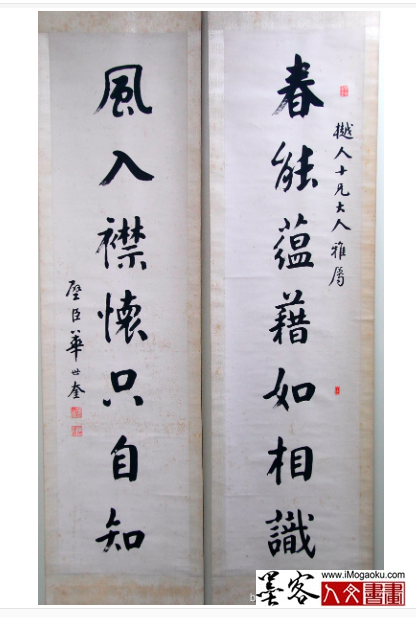 樾人十兄大人雅屬
春能蘊藉如相識
風入襟懷只自知
璧臣華世奎
www.iMogaoku.com
墨客
人文書畫